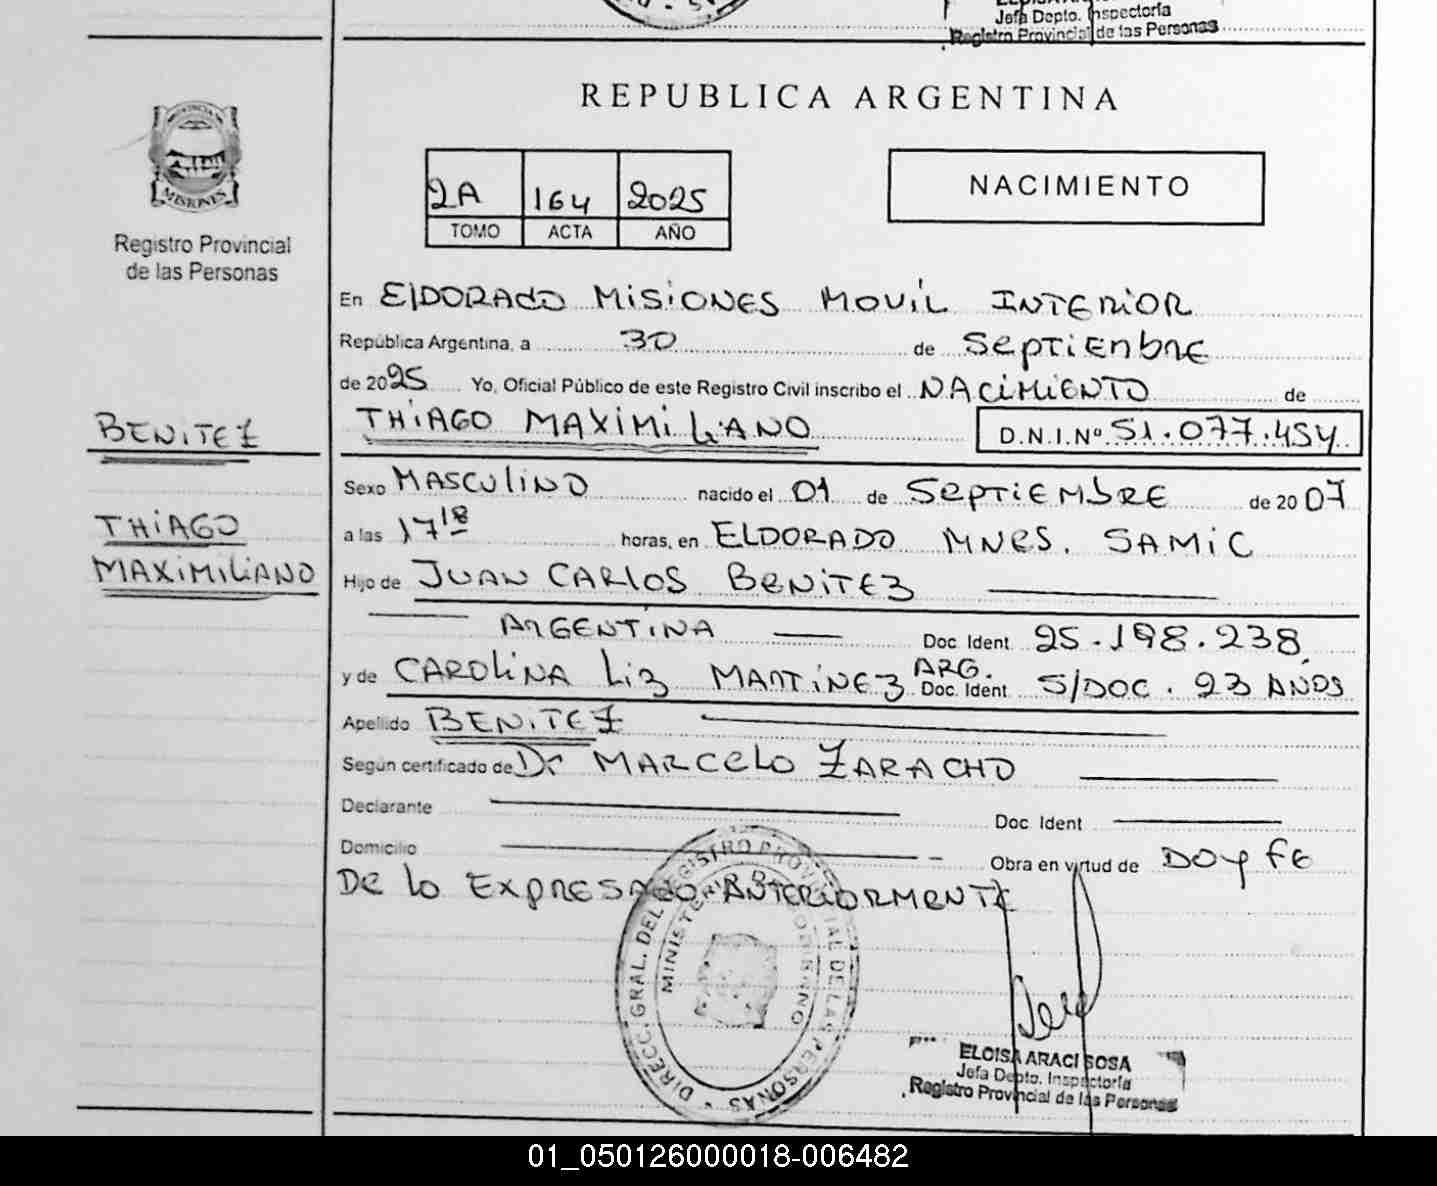 Jefa Depto. Inspectoría
Registro Provincial de las Personas
REPUBLICA ARGENTINA
MISIONES
Registro Provincial
de las Personas
2A 164 2025
TOMO ACTA AÑO
NACIMIENTO
En ElDORADO MISIONES MOVIL INTERIOR
República Argentina, a 30 de SepTIEnbRE
de 2025 Yo, Oficial Público de este Registro Civil inscribo el NACIMIENTO de
THIAGO MAXIMILIANO D.N.I.Nº 51.077.454
BENITEZ
THIAGO
MAXIMILIANO
Sexo MASCULINO nacido el 01 de SEPTIEMbRE de 2007
a las 17 18 horas, en ELDORADO MNES. SAMIC
Hijo de JUAN CARLOS BENITEZ
ARGENTINA Doc. Ident. 25.198.238
y de CAROLINA LIZ MARTINEZ ARG. Doc. Ident S/DOC. 23 AÑOS
Apellido BENITEZ
Según certificado de Dr MARCELO ZARACHO
Declarante Doc. Ident
Domicilio Obra en virtud de DOY FE
DE LO EXPRESADO ANTERIORMENTE
DIRECC. GRAL. DEL REGISTRO PROVINCIAL DE LAS PERSONAS
MINISTERIO GOBIERNO
ELOISA ARACI SOSA
Jefa Depto. Inspectoría
Registro Provincial de las Personas
01_050126000018-006482